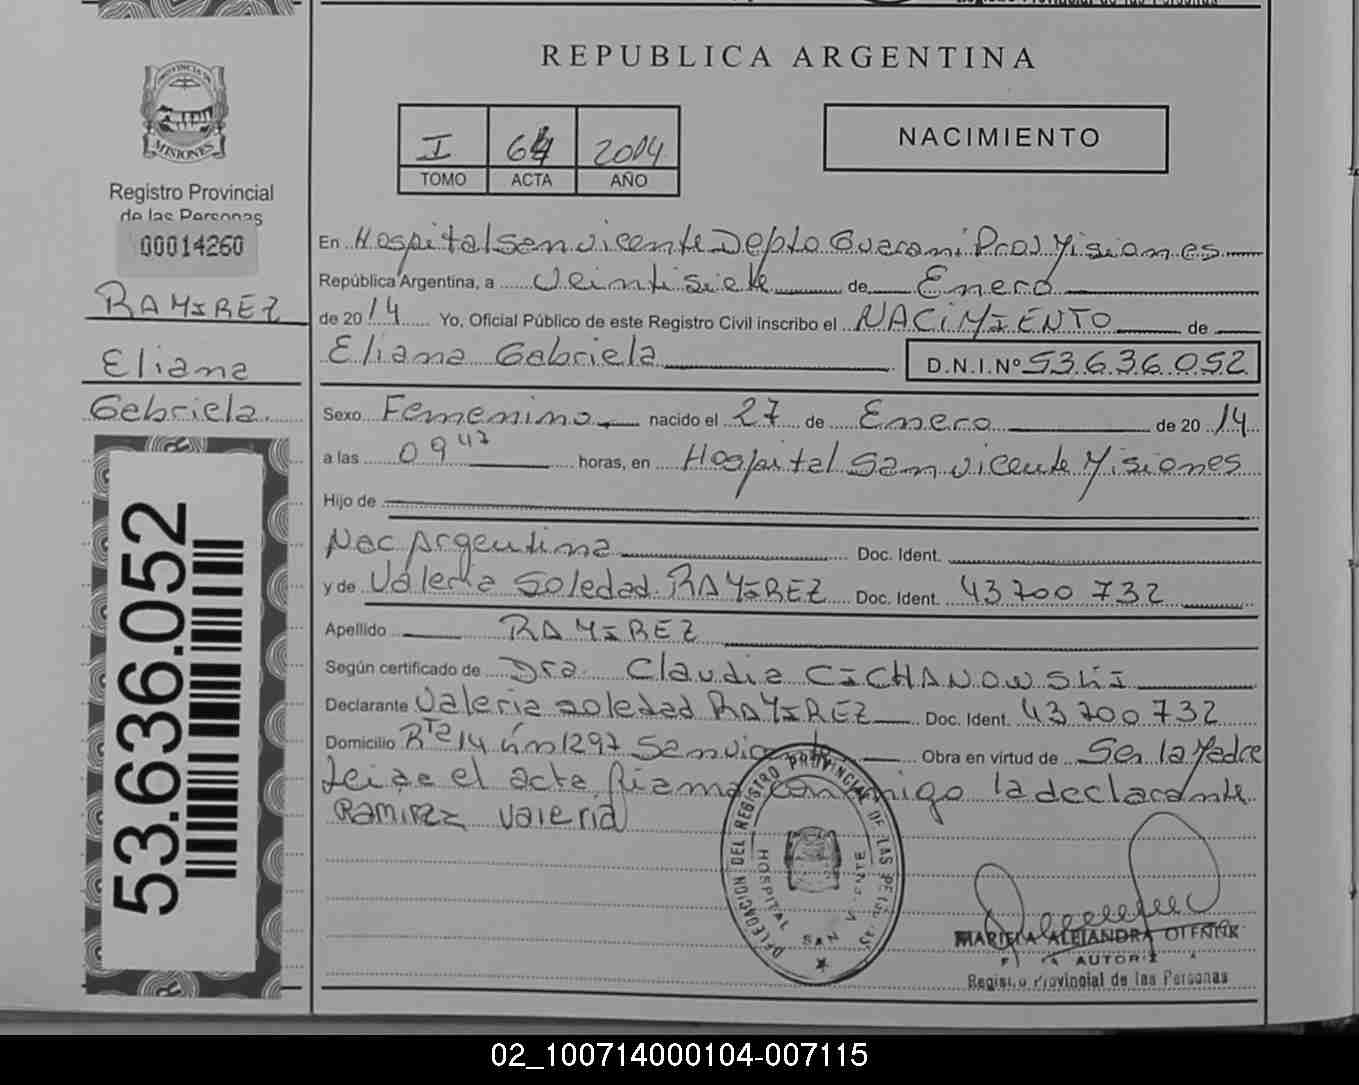 Registro Provincial de las Personas
PROVINCIA DE
MISIONES
Registro Provincial
de las Personas
00014260
RAMIREZ
Eliana
Gabriela
53.636.052
REPUBLICA ARGENTINA
I 64 2014
TOMO ACTA AÑO
NACIMIENTO
En Hospital San Vicente Depto Guarani Prov Misiones
República Argentina, a Veintisiete de Enero
de 2014 Yo, Oficial Público de este Registro Civil inscribo el NACIMIENTO de
Eliana Gabriela D.N.I.Nº 53.636.052
Sexo Femenino nacido el 27 de Enero de 2014
a las 09 47 horas, en Hospital San Vicente Misiones
Hijo de
Nac Argentina Doc. Ident.
y de Valeria Soledad RAMIREZ Doc. Ident. 43700732
Apellido RAMIREZ
Según certificado de Dra. Claudia CICHANOWSKI
Declarante Valeria Soledad RAMIREZ Doc. Ident. 43700732
Domicilio Rta 14 km 1297 San Vicente Obra en virtud de Ser la Madre
Leida el acta firma conmigo la declarante
RAMIREZ Valeria
DELEGACION DEL REGISTRO PROVINCIAL DE LAS PERSONAS
HOSPITAL SAN VICENTE
MARIELA ALEJANDRA
AUTORIZ
Registro Provincial de las Personas
02_100714000104-007115